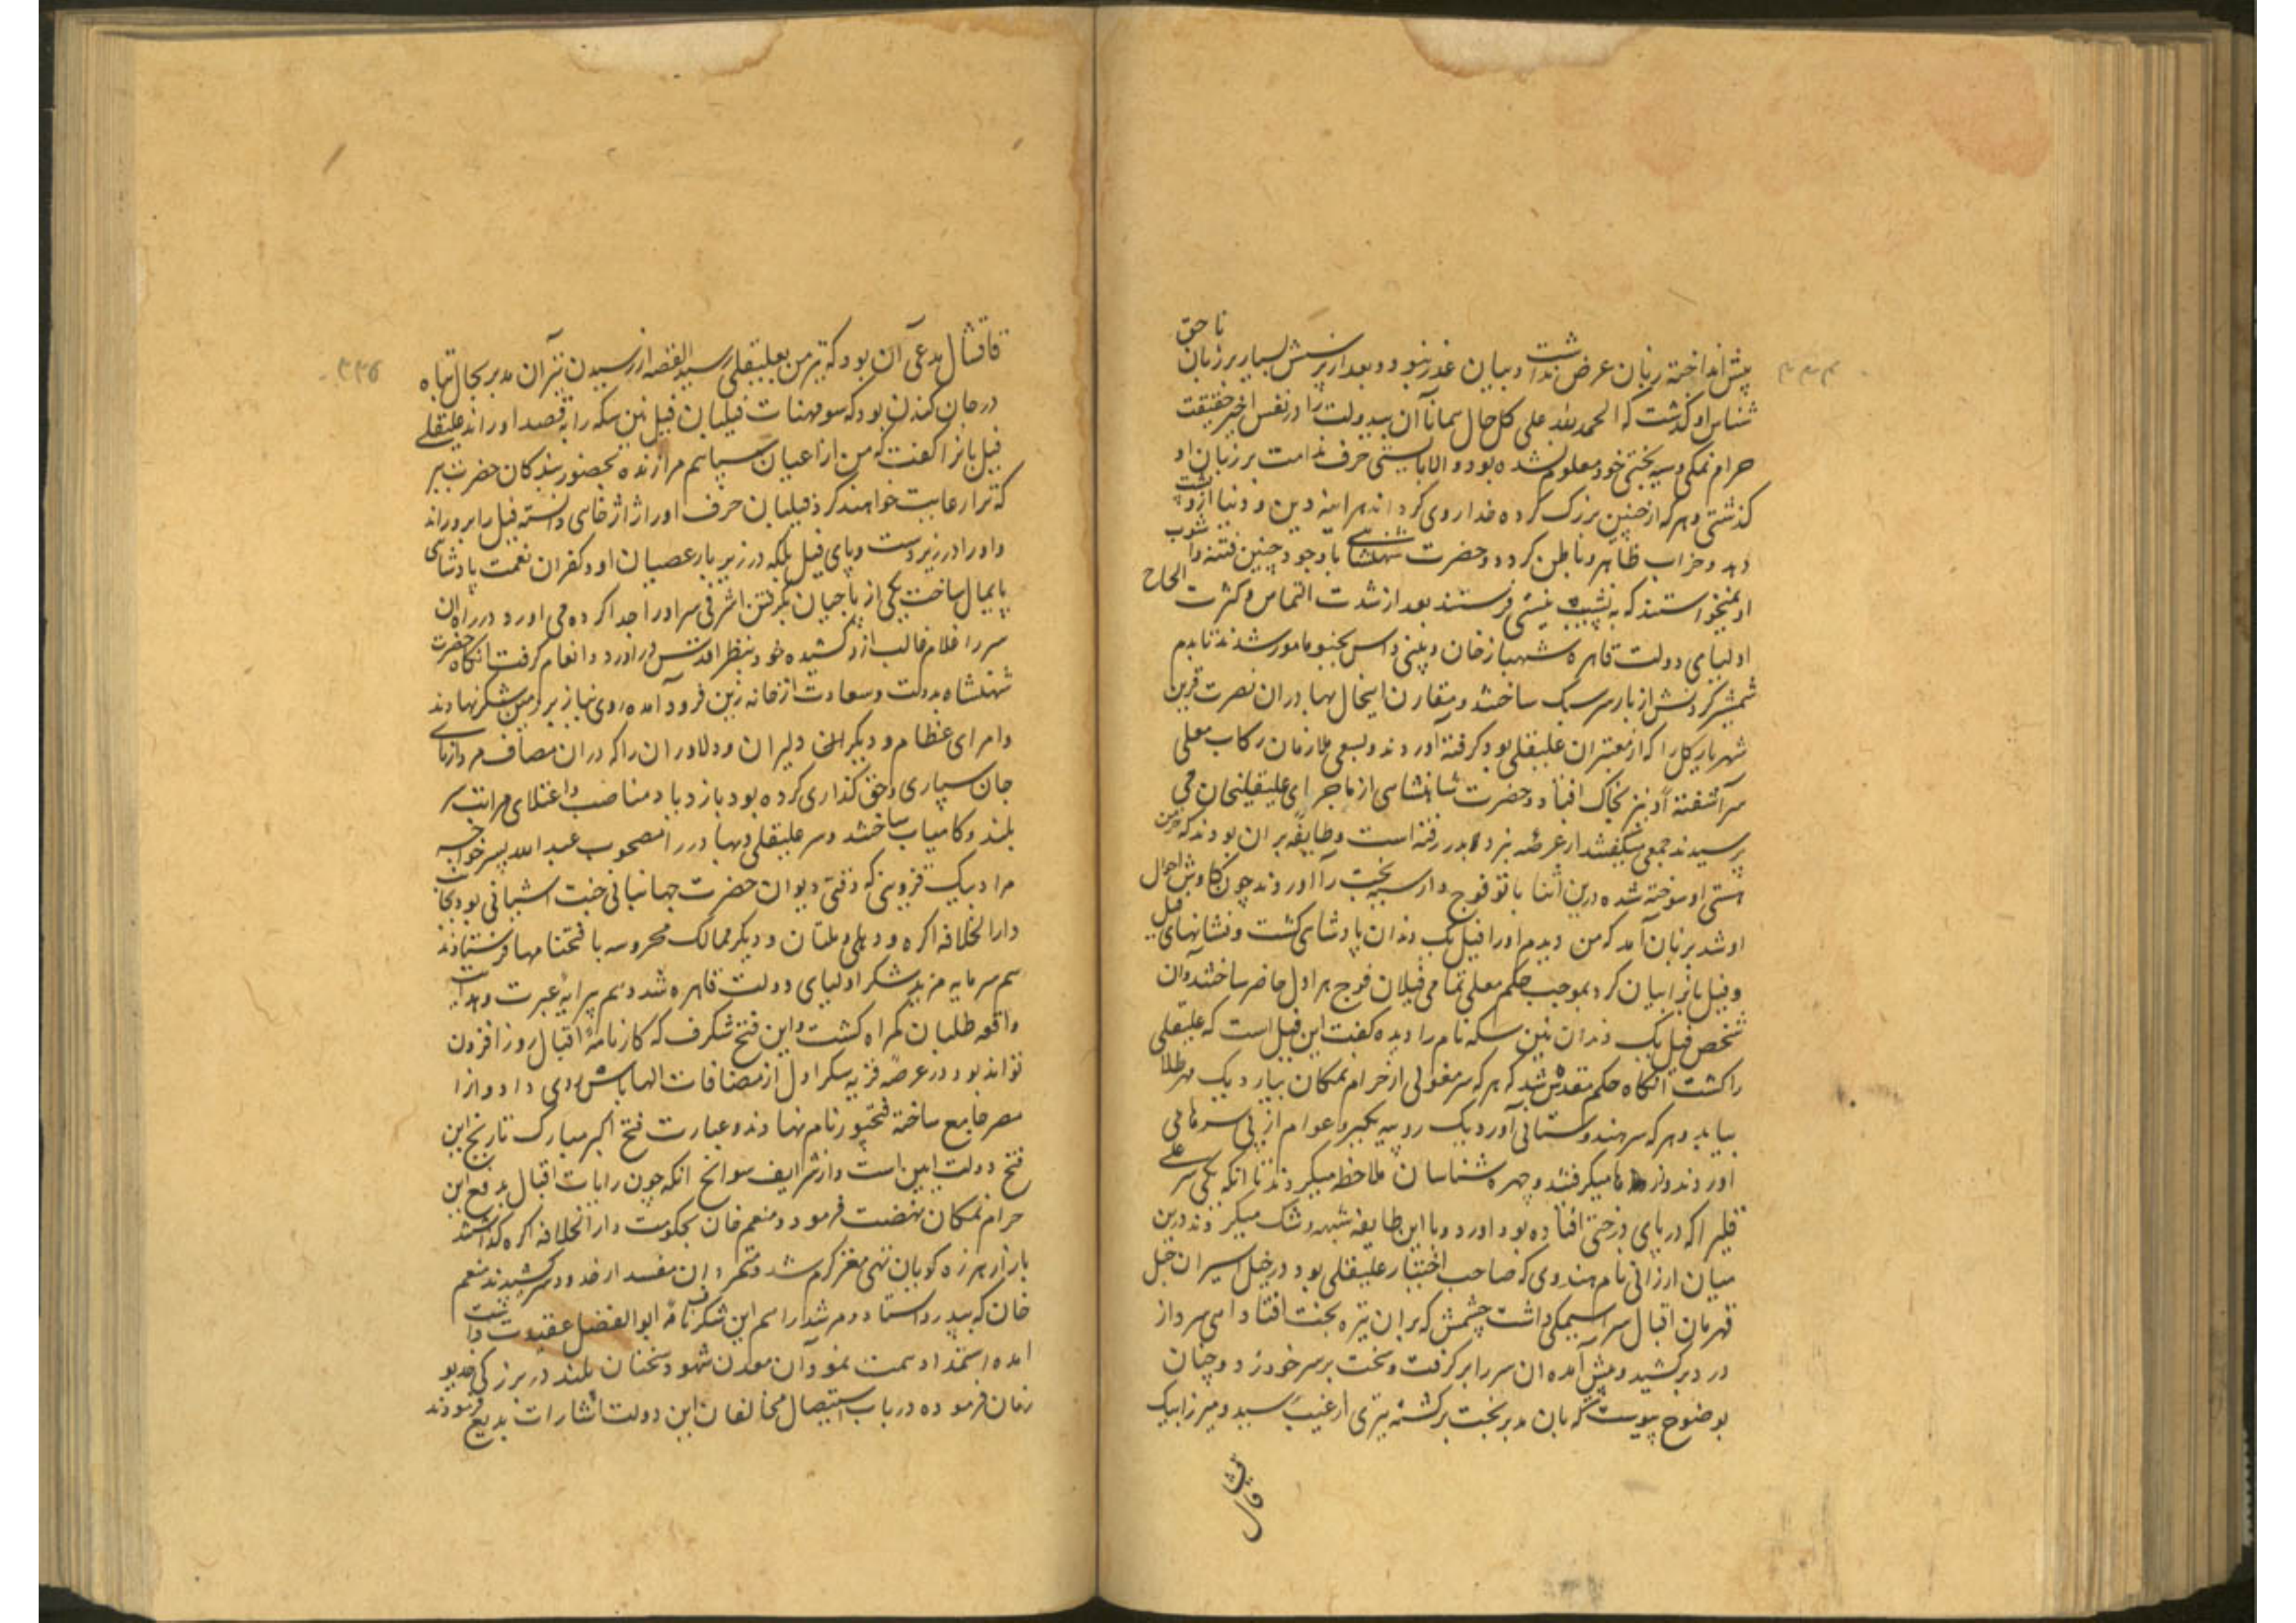 پیش انداخته زبان عرض نداشت و بیان عذر نبود و بعد از پرسش بسیار بر زبان ناحق
شناس او گذشت که الحمد لله علی کل حال همانا آن بیدولت را در نفس اخیر حقیقت
حرام نمکی و سیه بختی خود معلوم نشده بود و الا بایستی حرف ندامت بر زبان او
گذشتی و هر که از چنین بزرگ کرده خدا روی گرداند هر اینه دین و دنیا ازو پشت
دهد و خراب ظاهر و باطن گردد و حضرت شهنشاهی با وجود چنین فتنه و آشوب
او نمیخواستند که به نشیب نیستی فرستند بعد از شدت التماس و کثرت الحاح
اولیای دولت قاهره شهباز خان و و داس کنبو مامور شدند تا بدم
شمشیر گردنش از بار سر سبک ساختند و مقارن اینحال بهادران نصرت قرین
شهریار کل را که از معتبران علیقلی بود گرفته آوردند و بسعی ملازمان رکاب معلی
سر آشفته او نیز بخاک افتاد و حضرت شاهنشاهی از ماجرای علیقلیخان می
پرسیدند جمعی میگفتند از عرصه نبرد بدر رفته است و طایفه بران بودند که خرمن
هستی او سوخته شده درین اثنا بابو فوجدار سیه بخت را آوردند چون کاوش احوال
او شد بر زبان آمد که من دیدم او را فیل یک دندان پادشاهی کشت و نشانهای فیل
و فیل بانرا بیان کرد بموجب حکم معلی تمامی فیلان فوج هراول حاضر ساختند و آن
شخص فیل یک دندان نین سکه نام را دیده گفت این فیل است که علیقلی
را کشت آنگاه حکم مقدس شد که هر که سر مغولی از حرام نمکان بیارد یک مهر طلا
بیابد و هر که سر هندوستانی آورد یک روپیه بگیرد عوام از پی سرها می
آوردند و زرها میگرفتند و چهره شناسان ملاحظه میکردند تا انکه یکی سر علی
قلیرا که در پای درختی افتاده بود آورد و با این طایفه شبهه و شک میکردند درین
میان ارزانی نام هندوی که صاحب اختیار علیقلی بود در خیل اسیران خیل
قهرمان اقبال سراسیمگی داشت چشمش که بران تیره بخت افتاد آهی سرد از
درد برکشید و پیش آمده ان سر را بر گرفت و سخت بر سر خود زد و چنان
بوضوح پیوست که بان مدبر بخت برگشته تیری از غیب رسید و میرزا بیک
قاقشال
قاقشال مدعی آن بود که تیر من بعلیقلی رسید القصه از رسیدن تیر آن مدبر بحال تباه
در جان کندن بود که سومنات فیلبان فیل نین سکه را بقصد او راند علیقلی
فیل بانرا گفت که من از اعیان سپاهم مرا زنده بحضور بندگان حضرت ببر
که ترا رعایت خواهند کرد فیلبان حرف او را از ژاژخائی دانسته فیل را برو راند
و او را در زیر دست و پای فیل بلکه در زیر بار عصیان او و کفران نعمت پادشاهی
پایمال ساخت یکی از پاجیان بگرفتن اشرفی سر او را جدا کرده می آورد و در راه آن
سر را غلام غالب از دستش کشیده خود بنظر اقدس در آورد و انعام گرفت آنگاه حضرت
شهنشاه بدولت و سعادت از خانه زین فرود آمده روی نیاز بر زمین شکر نهادند
و امرای عظام و دیگر دلیران و دلاوران را که دران مصاف مرد آزمای
جان سپاری و حق گذاری کرده بود بازدیاد مناصب و اعتلای مراتب سر
بلند و کامیاب ساختند و سر علیقلی و بهادر را مصحوب عبد الله پسر خواجه
مراد بیک قزوینی که وقتی دیوان حضرت جهانبانی جنت آشیانی بود بجانب
دار الخلافه اگره و دهلی و ملتان و دیگر ممالک محروسه با فتحنامها فرستادند
هم سرمایه مزید شکر اولیای دولت قاهره شد و هم پیرایه عبرت و هدایت
واقعه طلبان گمراه گشت و این فتح شگرف که کارنامه اقبال روز افزون
تواند بود در عرصه قریه سکراول از مضافات الهاباش روی داد و آنرا
مصر جامع ساخته فتحپور نام نهادند و عبارت فتح اکبر مبارک تاریخ این
فتح دولت ابین است و از شرایف سوانح انکه چون رایات اقبال بدفع این
حرام نمکان نهضت فرمود و منعم خان بحکومت دار الخلافه اگره گذاشتند
بازار هرزه گویان تهی مغز گرم شد و متمردان مفسد از حدود سر کشیدند منعم
خان که پیدر و استاد و مرشد راسم این شگرفنامه ابو الفضل عقیدت داشت
آمده استمداد همت نمود آن معدن شهود سخنان بلند در بزرگی خدیو
زمان فرموده در باب استیصال مخالفان این دولت اشارات بدیع فرمودند